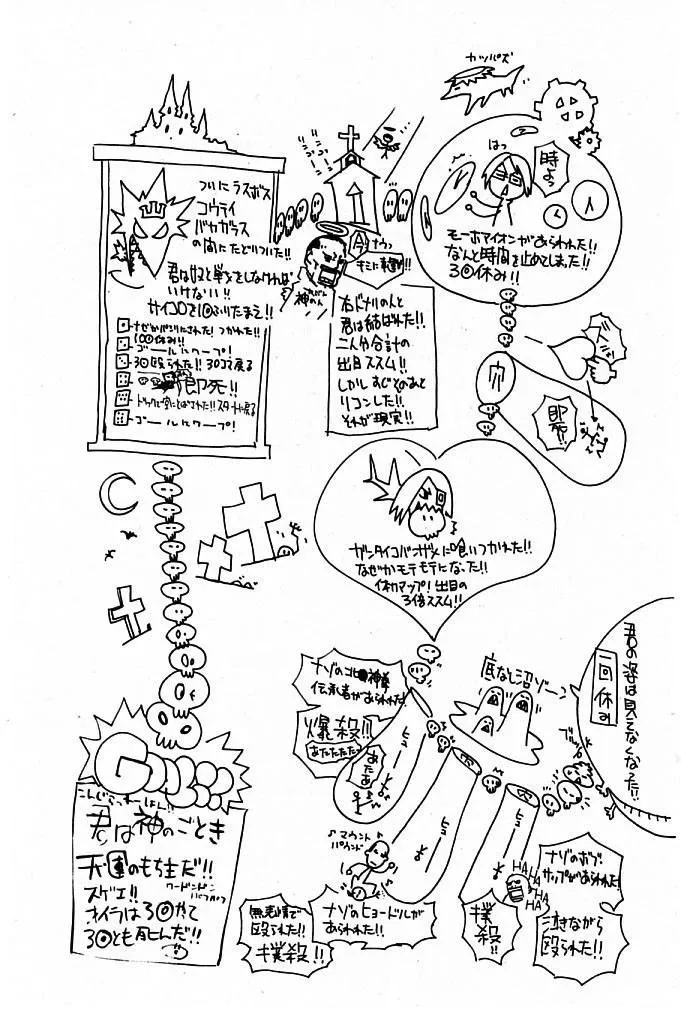 カッパズ
はっ
時よっ
モーホアイオンがあらわれた!!
なんと時間を止めてしまった!!
3回休み!!
ついにラスボス
コウテイ
バヤガラス
の間にたどりついた!!
君は奴と戦をしなければ
いけない!!
サイコロを1回ふりたまえ!!
100回休み!!
ゴールにワープ!
3回殴られた!! 30コマ戻る
即死!!
ゴールにワープ!
神の
右ドナリの人と
君は結ばれた!!
二人分合計の
出目ススム!!
しかしすぐそのあと
リコンした!!
それが現実!!
穴
即死!!
ガンタイコバンザメに喰いつかれた!!
なぜかモテモテになった!!
体力マップ!出目の
3倍ススム!!
君の姿は見てなくなった!!
一回休み
底なし沼ゾーン
ナゾの北神拳
伝承者があらわれた!
爆殺!!
あたたたたっ
あたあ
ヒュー
穴
ヒュー
ヒュー
ブルッ
マウント
パウンド
ナゾのヒョードルが
あらわれた!!
無表情で
殴られた!!
撲殺!!
撲殺!!
HAHA
HA
HA
HA
ナゾのボブ
サップがあらわれた!
泣きながら
殴られた!!
GOAL
こんぐらっちゅれーしょん!!
君は神のごとき
天運のもち主だ!!
スゲエ!!
オイラは3回やて
3回とも死んだ!!